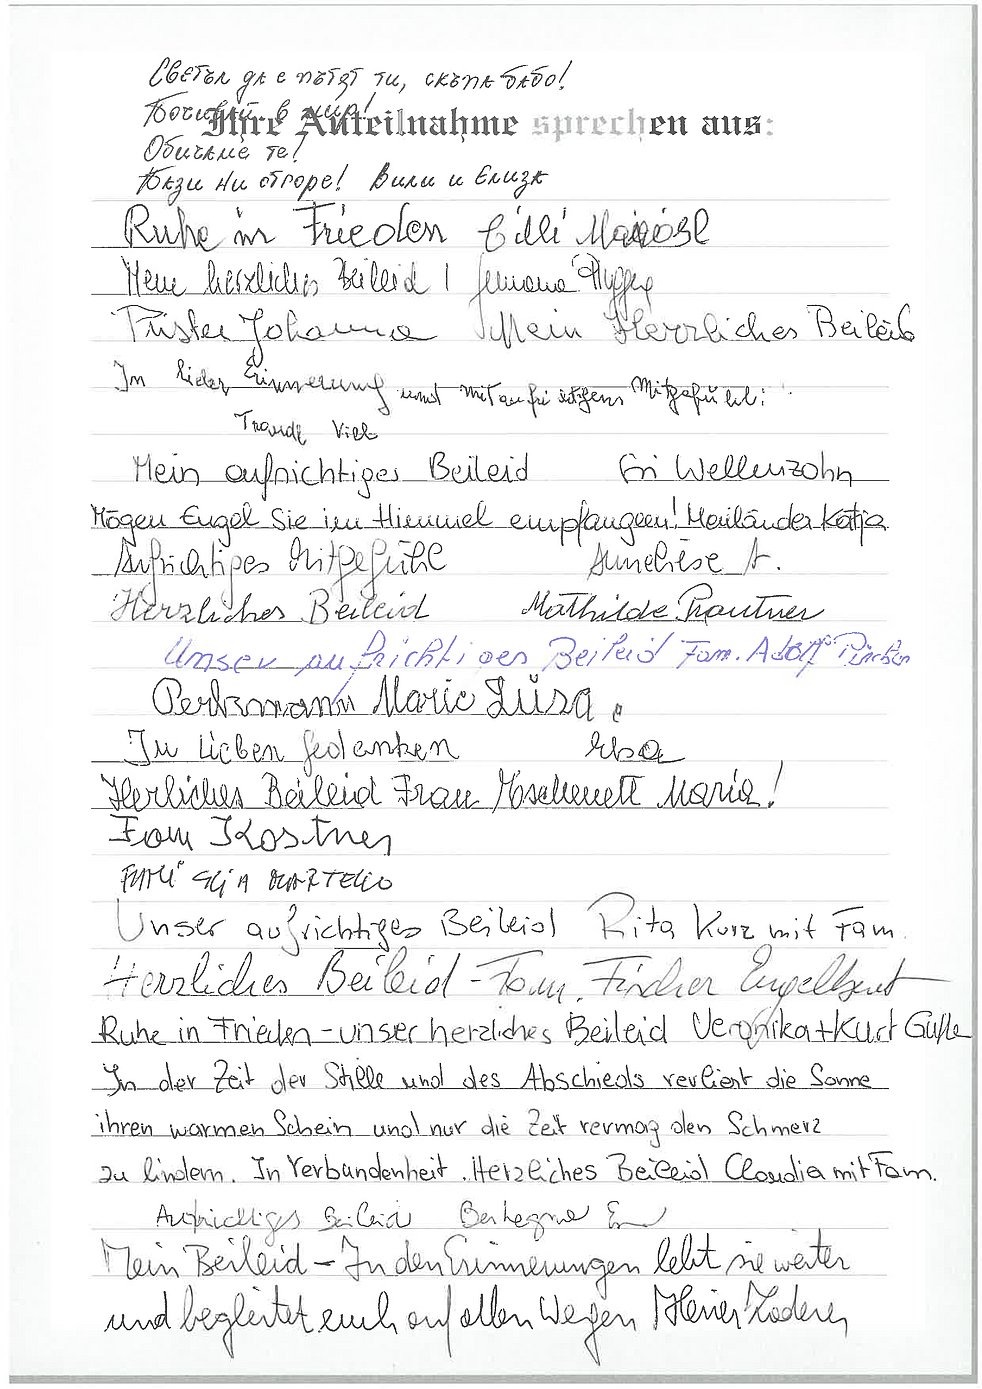 Светъл да е пътят ти, скъпа бабо!
Почивай в мир!
Ihre Anteilnahme sprechen aus:
Обичаме те!
Пази ни отгоре! Вили и Елиза
Ruhe in Frieden Cilli
Mein herzliches Beileid
Johanna Mein Herzliches Beileid
In lieber Erinnerung und mit aufrichtigem Mitgefühl:
Traudl
Mein aufrichtiges Beileid Eri Wellenzohn
Mögen Engel Sie im Himmel empfangen! Mailänder Katja
Aufrichtiges Mitgefühl Anneliese A.
Herzliches Beileid Mathilde Prantner
Unser aufrichtiges Beileid Fam. Adolf
Perkmann Marie Luisa
In lieben Gedenken Elsa
Herliches Beileid Frau Moschenett Maria!
Fam Kostner
Unser aufrichtiges Beileid Rita Kurz mit Fam.
Herzliches Beileid - Fam. Fischer Engelbert
Ruhe in Frieden - unser herzliches Beileid Veronika + Kurt
In der Zeit der Stille und des Abschieds verliert die Sonne
ihren warmen Schein und nur die Zeit vermag den Schmerz
zu lindern. In Verbundenheit. Herzliches Beileid Claudia mit Fam.
Aufrichtiges Beileid
Mein Beileid - In den Erinnerungen lebt sie weiter
und begleitet euch auf allen Wegen